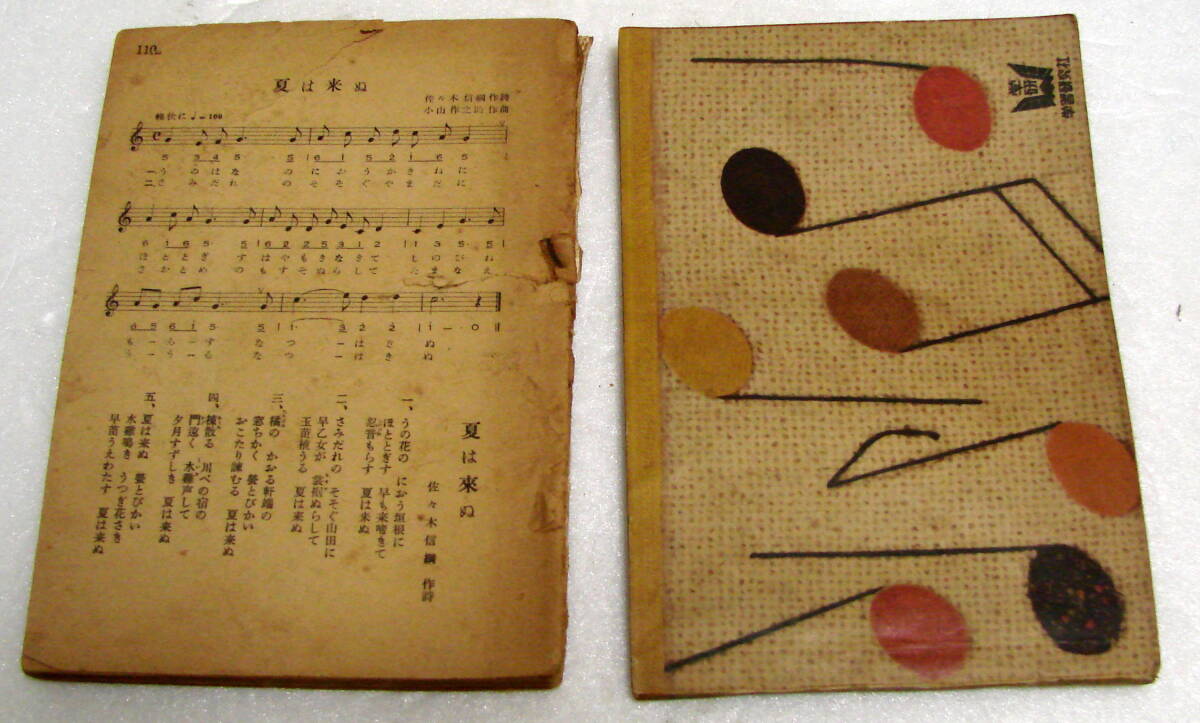 110
夏は来ぬ
佐々木信綱作詩
小山作之助作曲
軽快に ♩=100
5 3 4 5 5 | 6 1 5 2 1 6 5
一、う の は な の に お う か き ね に
二、さ み だ れ の そ そ ぐ や ま だ に
6 1 6 5 5 | 6 2 2 5 3 1 2 | 1 3 5 5 |
ほ と と ぎ す は や も き な き て し の び ね
さ お と め が も す そ ぬ ら し て た ま な え
6 5 6 1 5 5 | 1 3 2 2 | 1 — 0
も ー ら ー す な つ ー は き ぬ
う ー う ー る な つ ー は き ぬ
夏は來ぬ
佐々木信綱 作詩
一、うの花の におう垣根に
ほととぎす 早も来啼きて
忍音もらす 夏は来ぬ
二、さみだれの そそぐ山田に
早乙女が 裳裾ぬらして
玉苗植うる 夏は来ぬ
三、橘の かおる軒端の
窓ちかく 螢とびかい
おこたり諫むる 夏は来ぬ
四、楝散る 川べの宿の
門遠く 水雞声して
夕月すずしき 夏は来ぬ
五、夏は来ぬ 螢とびかい
水雞鳴き うつぎ花さき
早苗うえわたす 夏は来ぬ
学研
学習研究社